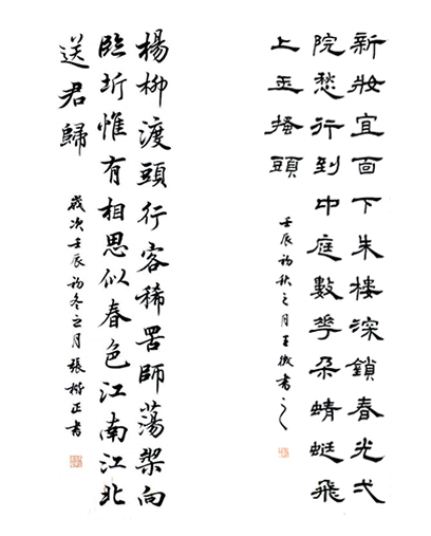 新妝宜面下朱樓深鎖春光弌
院愁行到中庭數花朵蜻蜓飛
上玉搔頭
壬辰初秋之月王微書
楊柳渡頭行客稀罟師蕩槳向
臨圻惟有相思似春色江南江北
送君歸
歲次壬辰初冬之月張楷正書